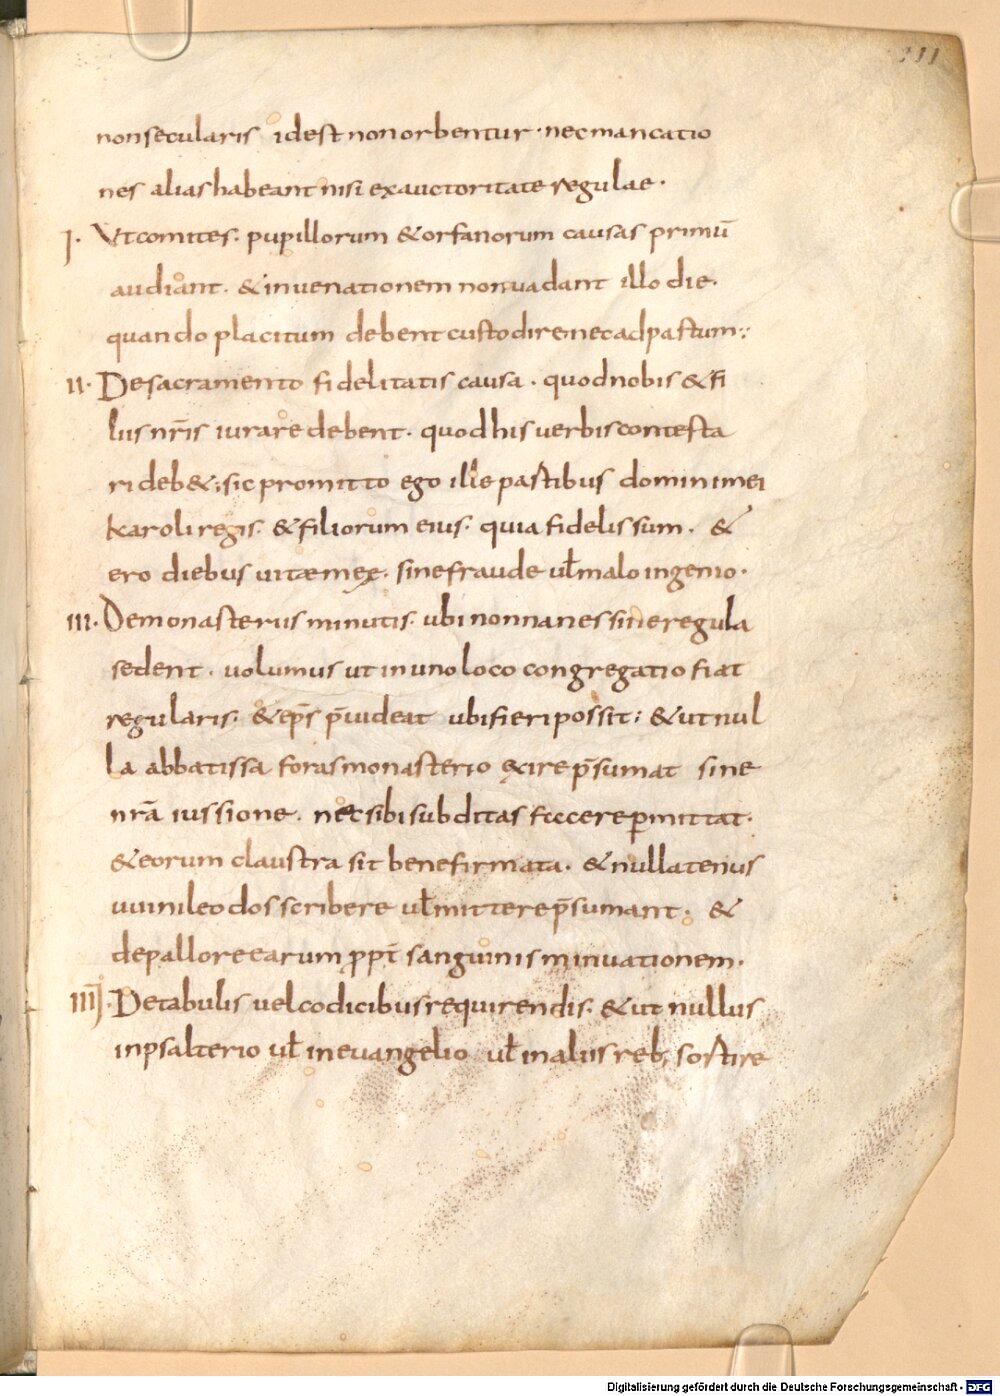 211
nonsecularis idest non orbentur · nec mancatio
nes alias habeant nisi ex auctoritate regulae ·
I · Vt comites · pupillorum & orfanorum causas primū
audiant · & in uenationem non uadant illo die ·
quando placitum debent custodire nec ad pastum :,
II · De sacramento fidelitatis causa · quod nobis & fi
liis nr̄is iurare debent · quod his uerbis contesta
ri deb& ; sic promitto ego ille pastibus domini mei
karoli regis · & filiorum eius · quia fidelis sum · &
ero diebus uitæ meę · sine fraude uł malo ingenio ·
III · De monasteriis minutis · ubi nonnanes sine regula
sedent · uolumus ut in uno loco congregatio fiat
regularis · & ep̄s p̄uideat ubi fieri possit ; & ut nul
la abbatissa foras monasterio exire p̄sumat sine
nr̄a iussione · nec sibi subditas faccere ꝑmittat ·
& eorum claustra sit bene firmata · & nullatenus
uuinileodos scribere uł mittere p̄sumant · &
de pallore earum ꝓpt̄ sanguinis minuationem ·
IIII · De tabulis uel codicibus requirendis · & ut nullus
in psalterio uł in euangelio uł in aliis reb; sortire
Digitalisierung gefördert durch die Deutsche Forschungsgemeinschaft - DFG